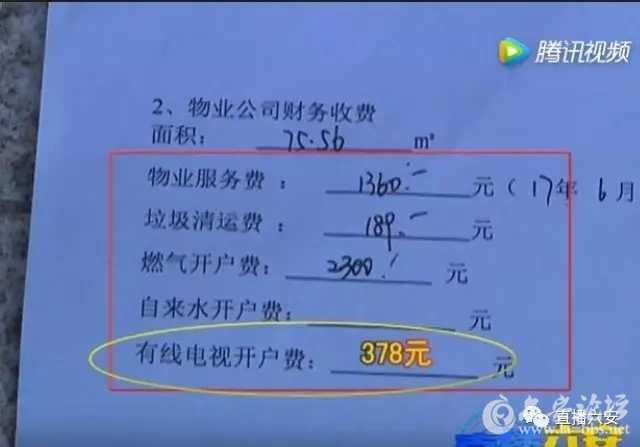 腾讯视频
2、物业公司财务收费
面积: 75.56 m²
物业服务费: 1360.- 元(17年6月
垃圾清运费: 189.- 元
燃气开户费: 2300.- 元
自来水开户费: 元
有线电视开户费: 378元 元
直播六安